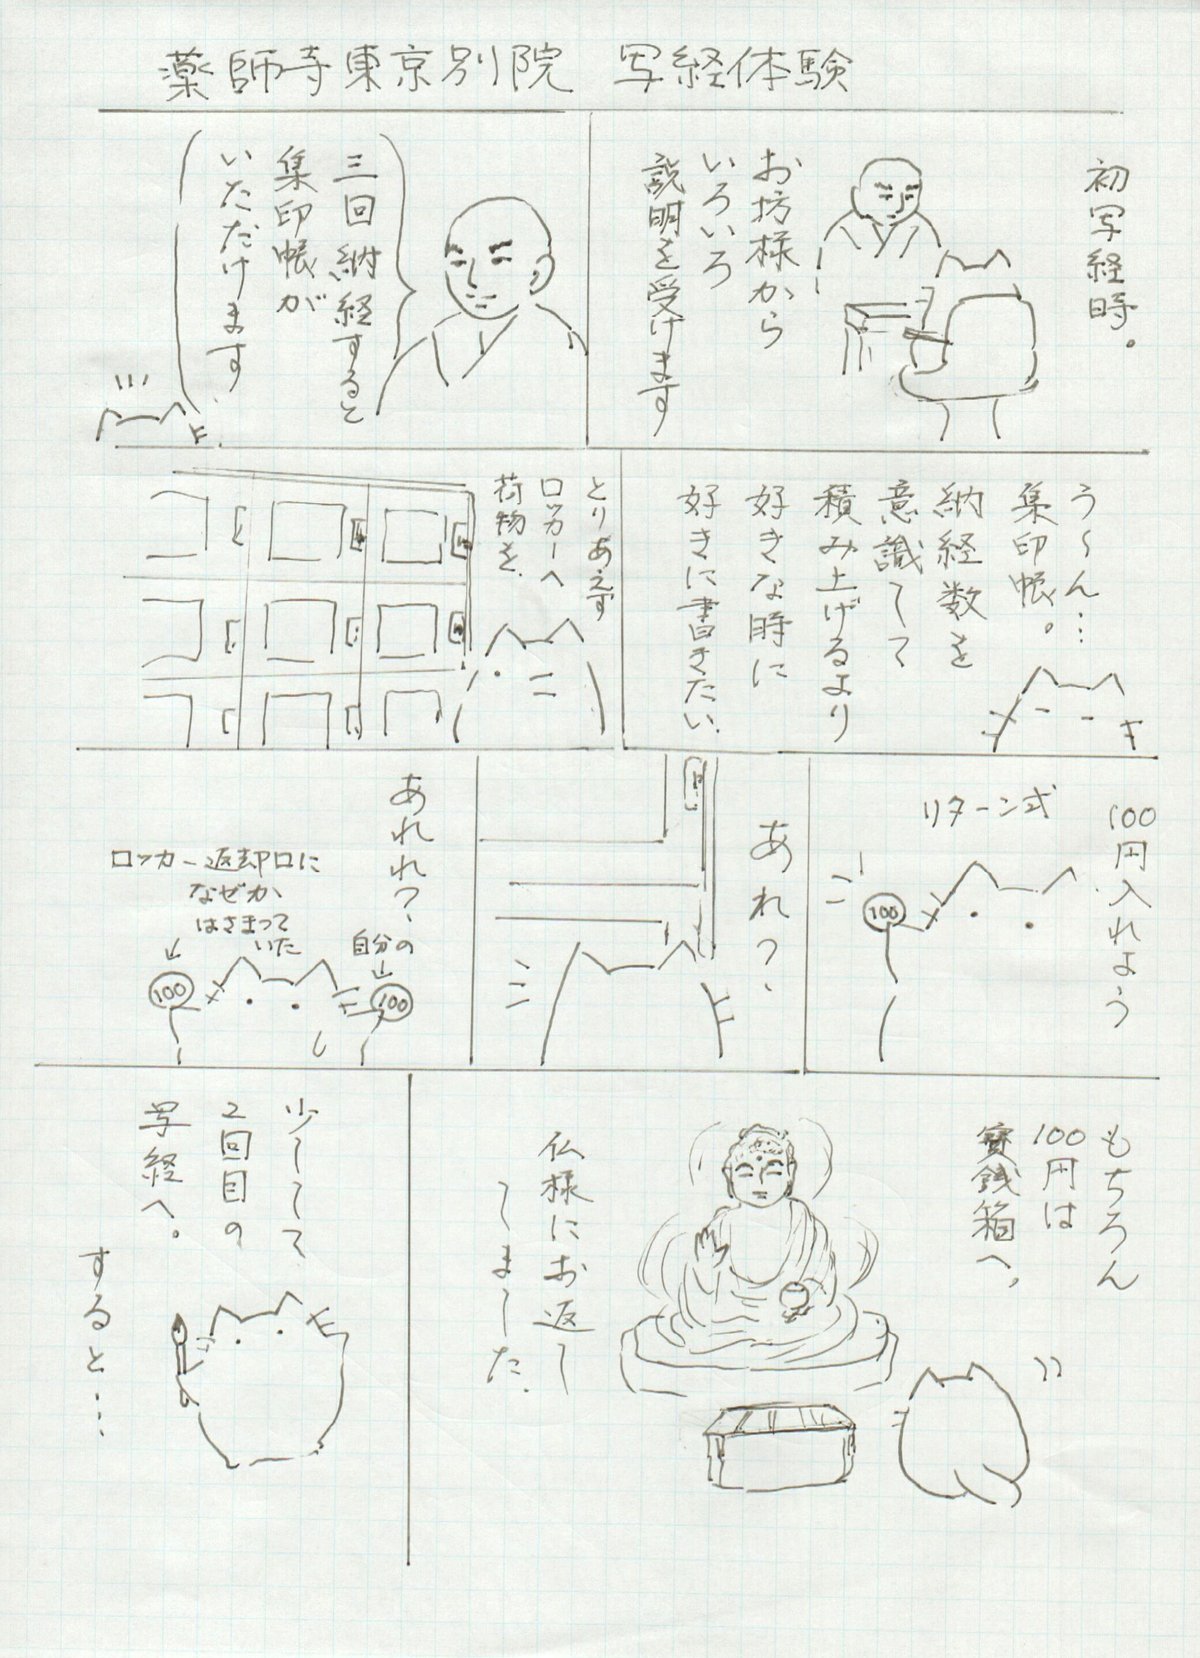 薬師寺東京別院 写経体験
初写経時。
お坊様から
いろいろ
説明を受けます
三回納経すると
集印帳が
いただけます
う〜ん…
集印帳。
納経数を
意識して
積み上げるより
好きな時に
好きに書きたい.
とりあえず
ロッカーへ
荷物を.
100円入れよう
リターン式
100
あれ?、
あれれ?、
ロッカー返却口に
なぜか
はさまって
いた
自分の
100
100
もちろん
100円は
賽銭箱へ,
仏様にお返し
しました.
少しして
2回目の
写経へ。
すると…